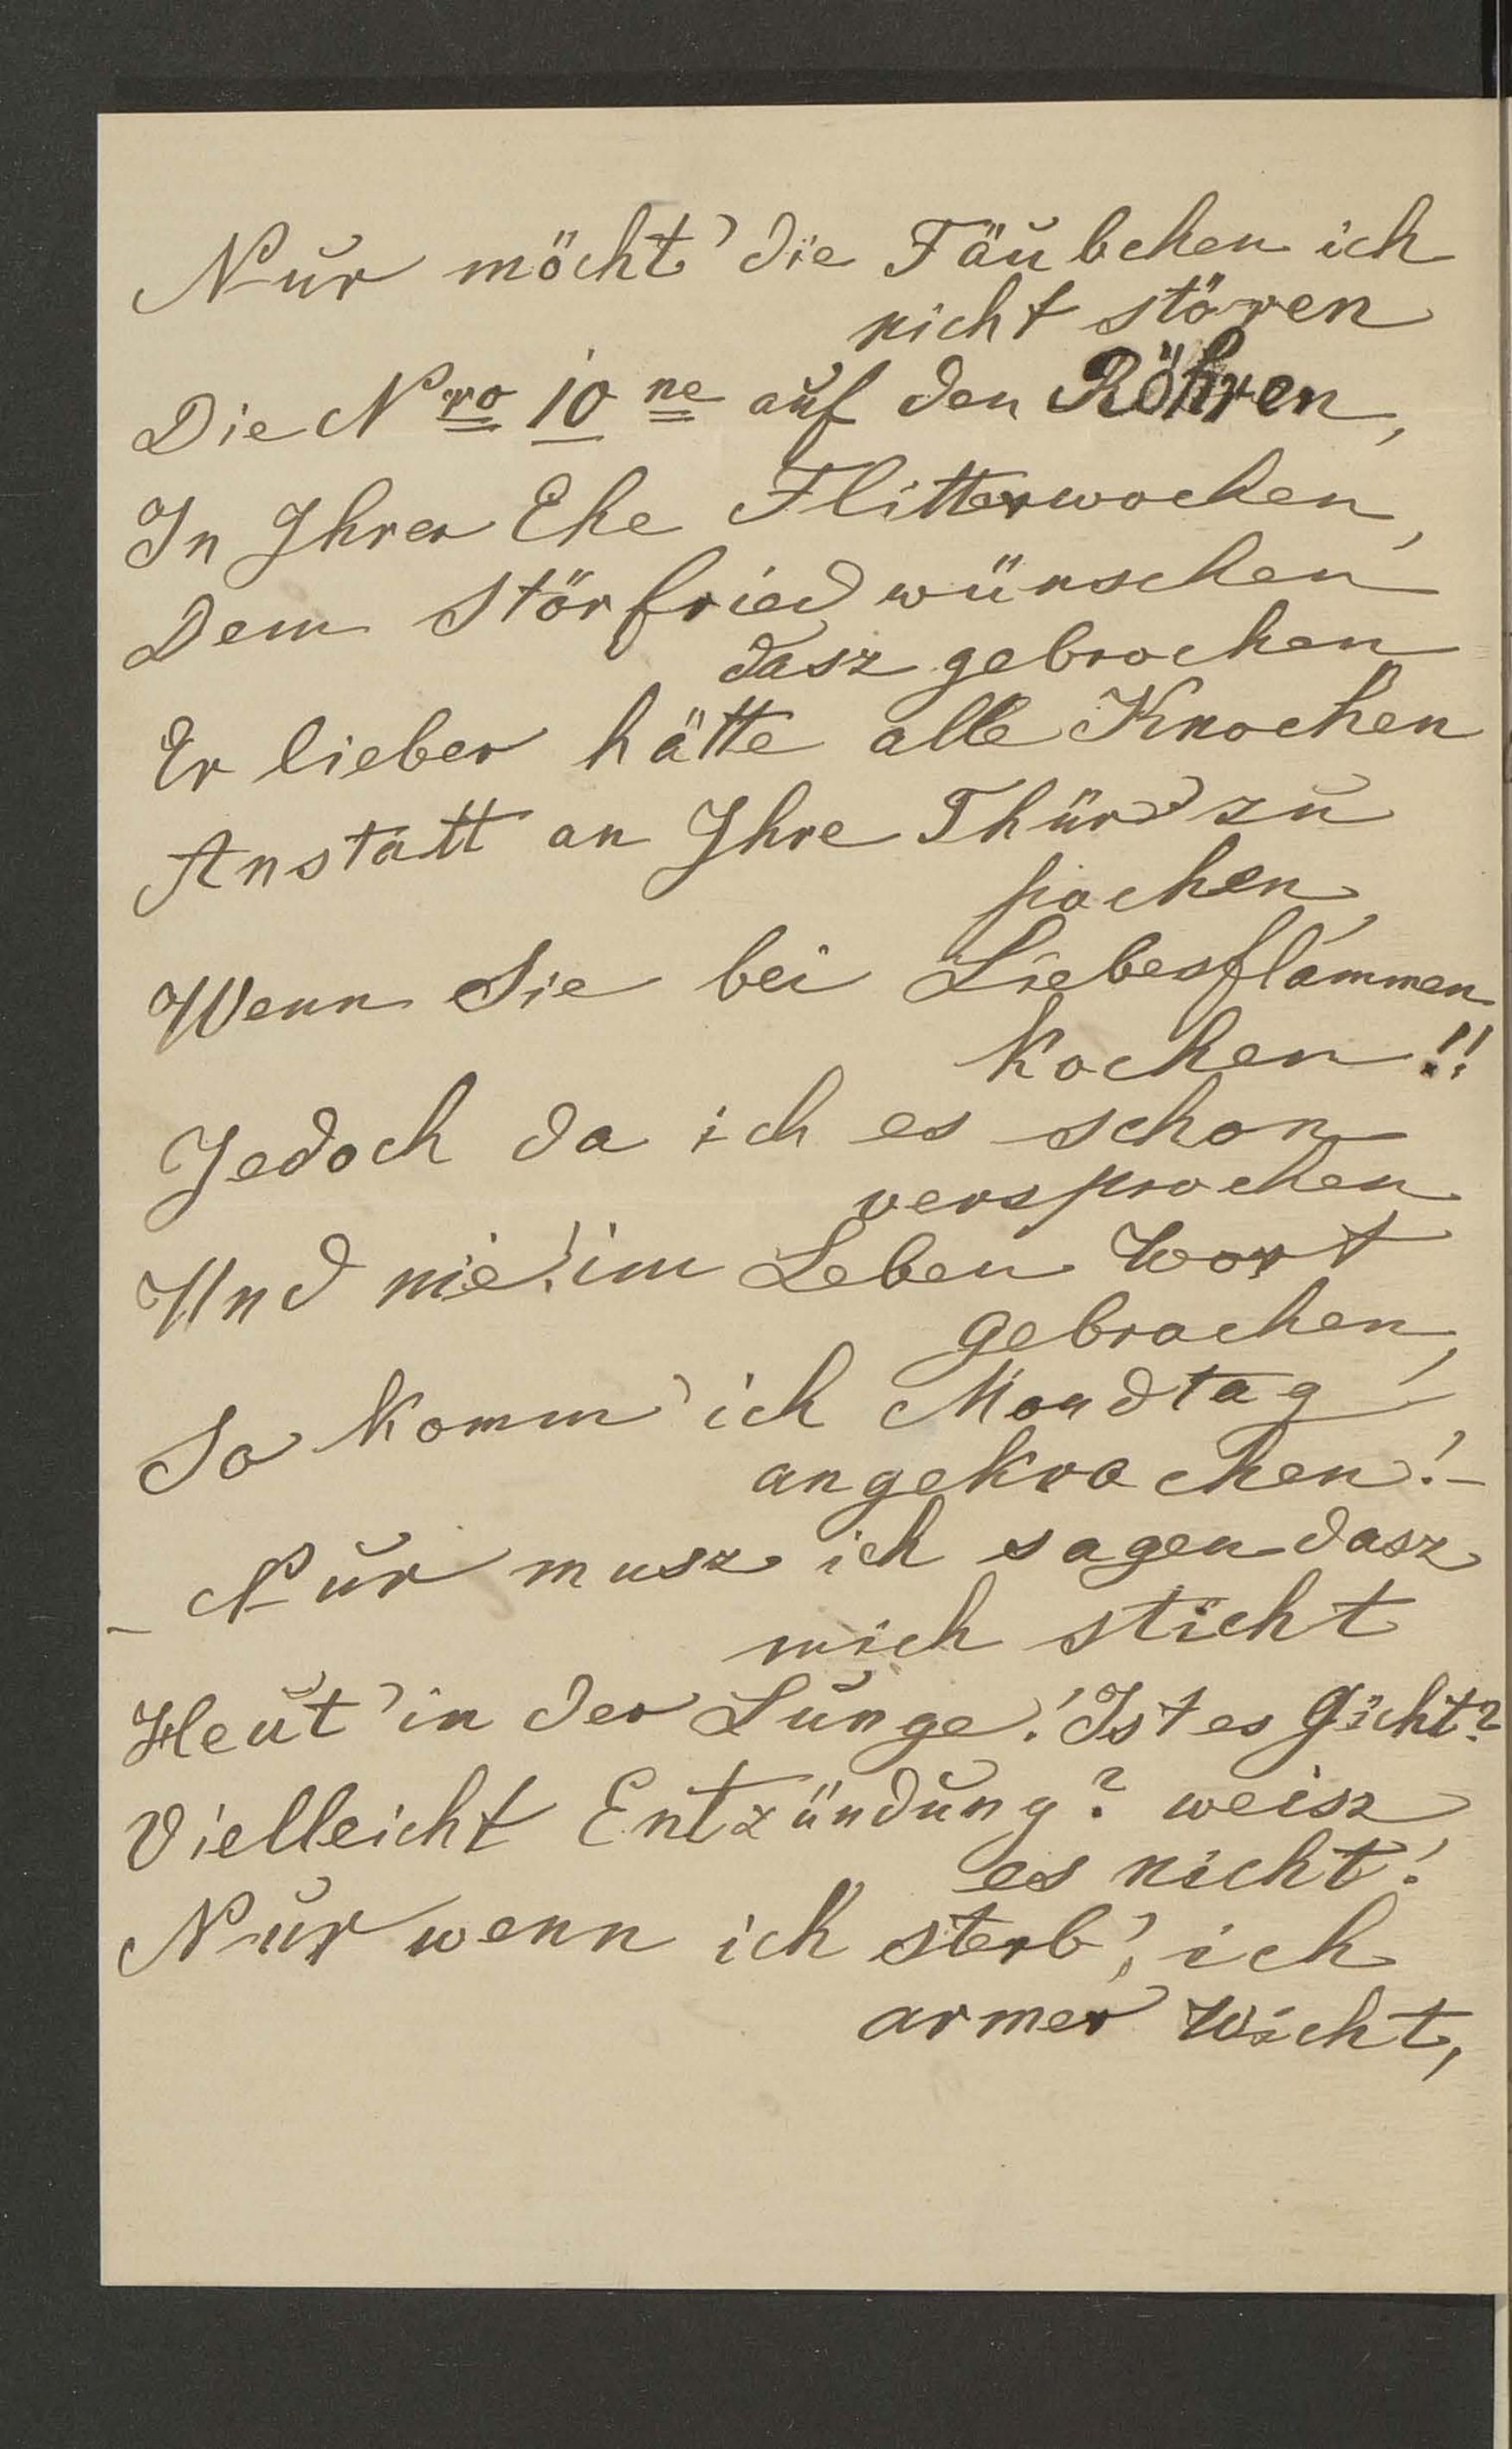 Nur möcht' die Täubchen ich
nicht stören
Die Nro 10 ne auf den Röhren,
In Ihrer Ehe Flitterwochen,
Dem Störfried wünschen
dasz gebrochen
Er lieber hätte alle Knochen
Anstatt an Ihre Thür zu
pochen,
Wenn Sie bei Liebesflammen
Kochen!!
Jedoch da ich es schon
versprochen
Und nie! im Leben Wort
gebrochen,
So komm' ich Mondtag
angekrochen! -
- Nur musz ich sagen dasz
mich sticht
Heut' in der Lunge! Ist es Gicht?
Vielleicht Entzündung? weisz
es nicht!
Nur wenn ich sterb', ich
armer Wicht,